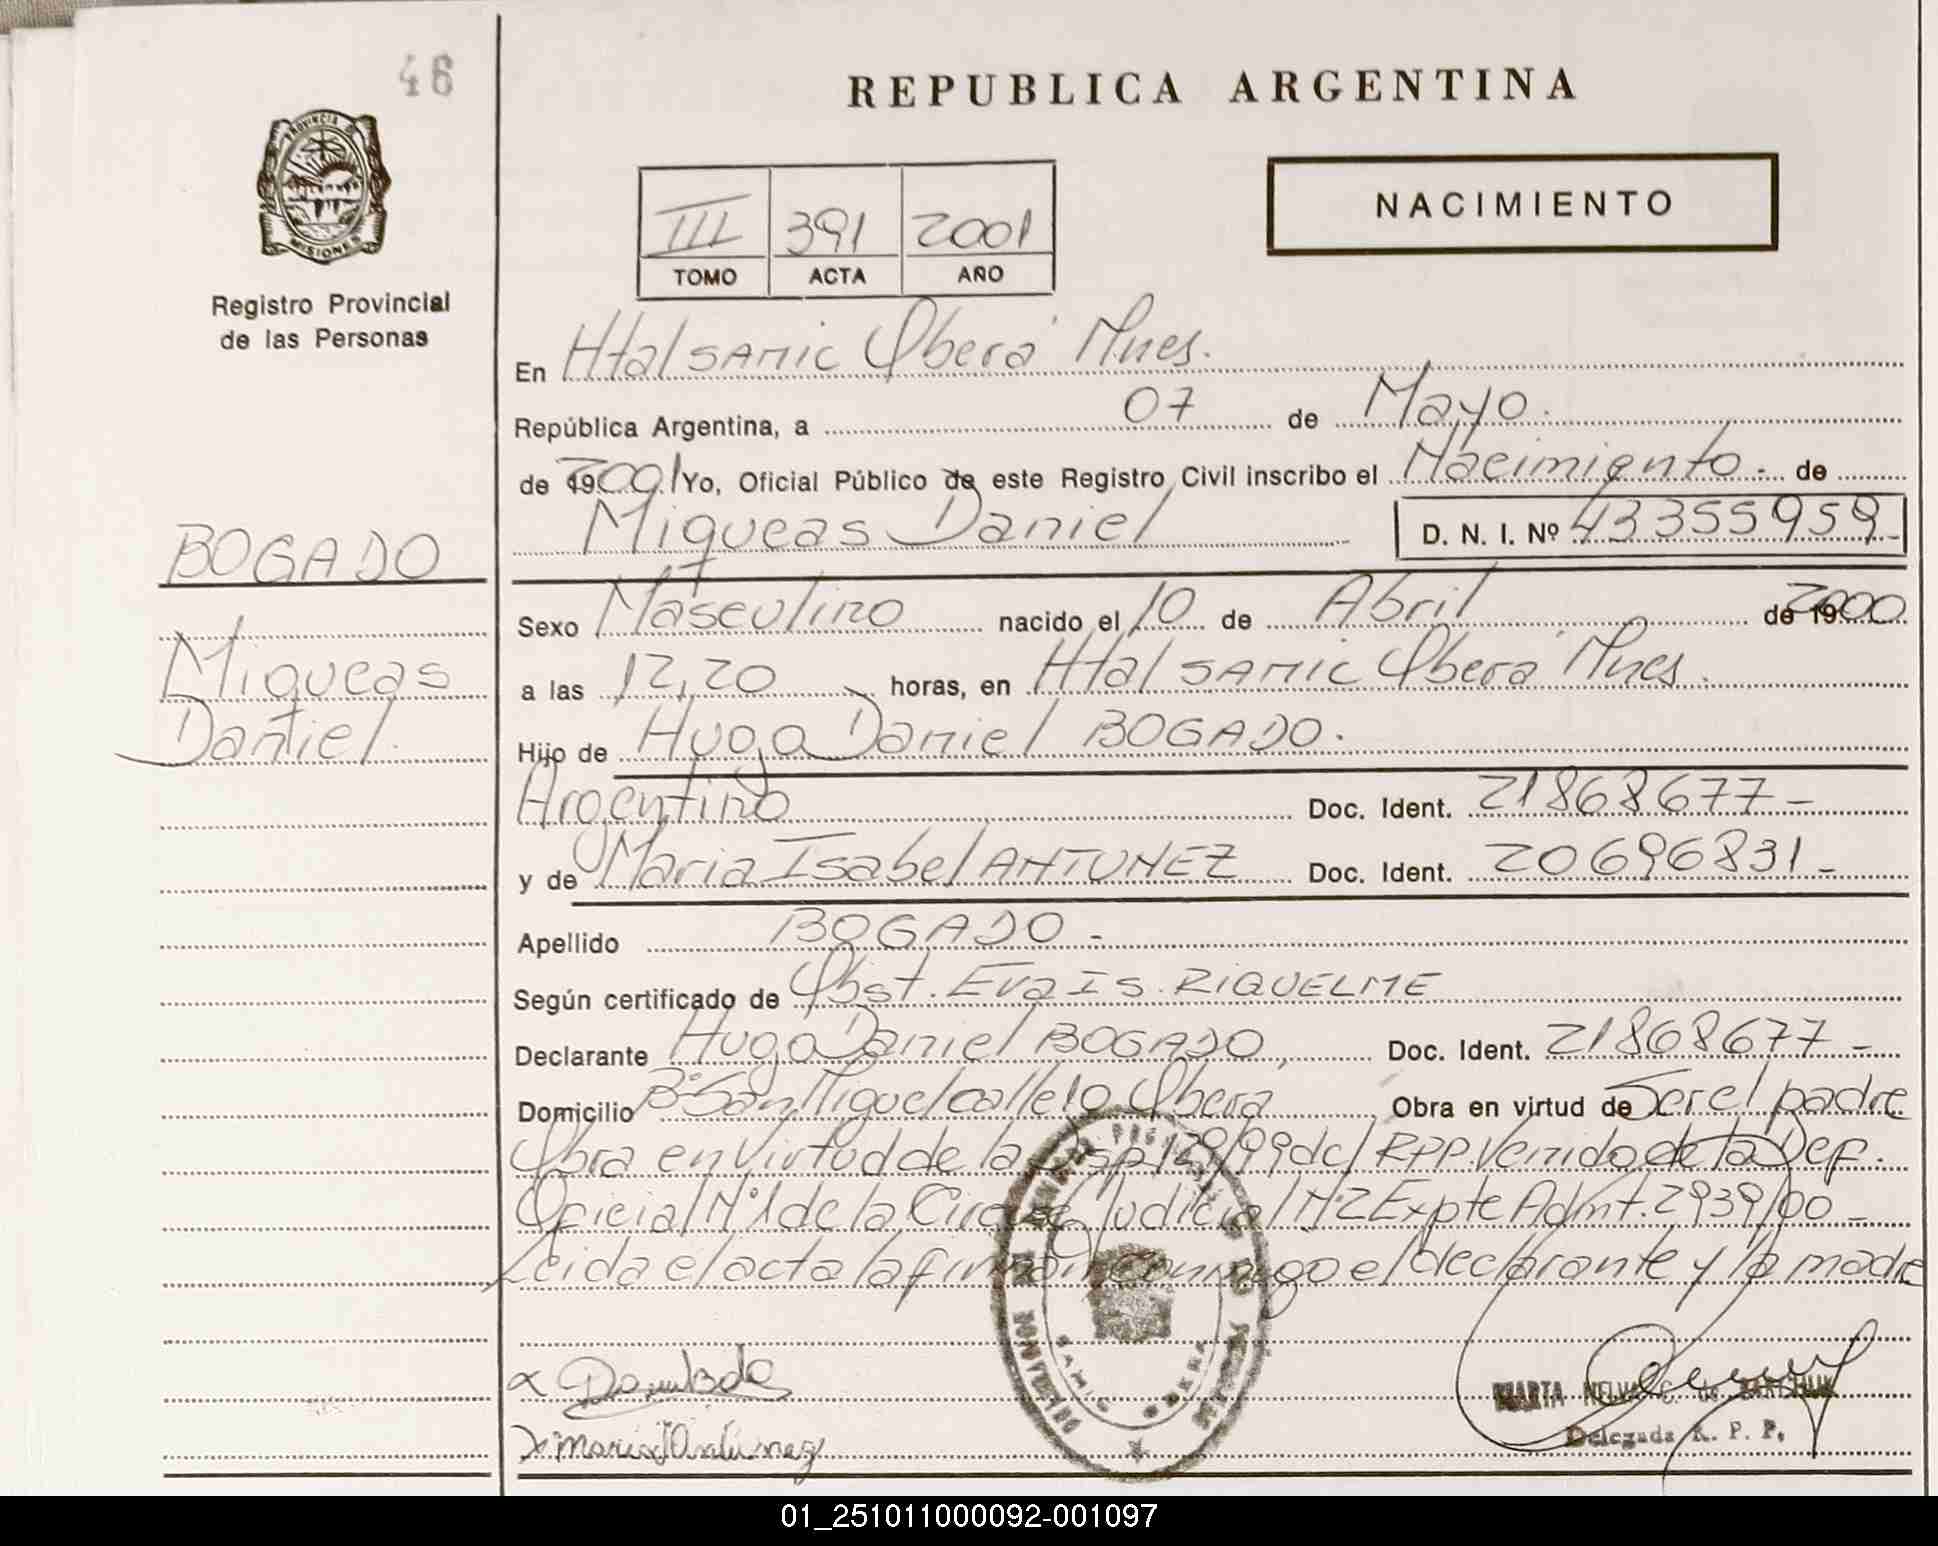 46
REPUBLICA ARGENTINA
PROVINCIA DE
MISIONES
Registro Provincial
de las Personas
III 391 2001
TOMO ACTA AÑO
NACIMIENTO
En Htal SAMIC Oberá Mnes.
República Argentina, a 07 de Mayo.
de 192001 Yo, Oficial Público de este Registro Civil inscribo el Nacimiento.- de
Miqueas Daniel D. N. I. Nº 43355959-
BOGADO
Miqueas
Daniel.
Sexo Masculino nacido el 10 de Abril de 192000
a las 12,20 horas, en Htal SAMIC Oberá Mnes.
Hijo de Hugo Daniel BOGADO.
Argentino Doc. Ident. 21868677-
y de Maria Isabel ANTUNEZ Doc. Ident. 20696831-
Apellido BOGADO-
Según certificado de Obst. Eva Is. RIQUELME
Declarante Hugo Daniel BOGADO, Doc. Ident. 21868677-
Domicilio Bº San Miguel calle 10 Oberá Obra en virtud de Ser el padre
Obra en Virtud de la Disp 129/99 del RPP. Venido de la Def.
Oficial Nº1 de la Circ. Judicial Nº2 Expte Admt. 2939/00-
Leida el acta la firman conmigo el declarante y la madre
SAMIC OBERA
x
x Maria I Antunez
MARTA MELVA C. de
Delegada R. P. P.
01_251011000092-001097